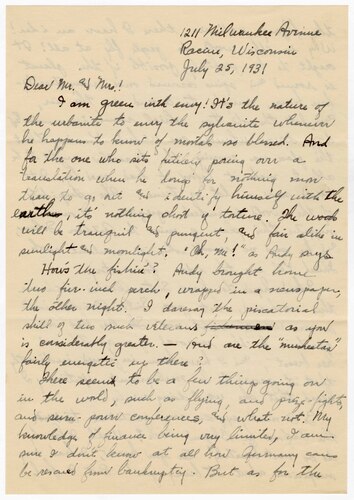 1211 Milwaukee Avenue
Racine, Wisconsin
July 25, 1931
Dear Mr. & Mrs.!
I am green with envy! It's the nature of
the urbanite to envy the sylvanite whenever
he happens to know of mortals so blessed. And
for the one who sits futilely poring over a
translation when he longs for nothing more
than to go out and identify himself with the
earth, it's nothing short of torture. The woods
will be tranquil and pungent, and fair alike in
sunlight and moonlight. "Oh, Me!" as Andy says.
How's the fishin'? Andy brought home
two five-inch perch, wrapped in a newspaper,
the other night. I daresay the piscatorial
skill of two such veterans as you
is considerably greater. — And are the "muskeetas"
fairly energetic up there?
There seems to be a few things going on
in the world, such as flying, and prize-fights,
and seven-power conferences, and what not. My
knowledge of finance being very limited, I am
sure I don't know at all how Germany can
be rescued from bankruptcy. But as for the